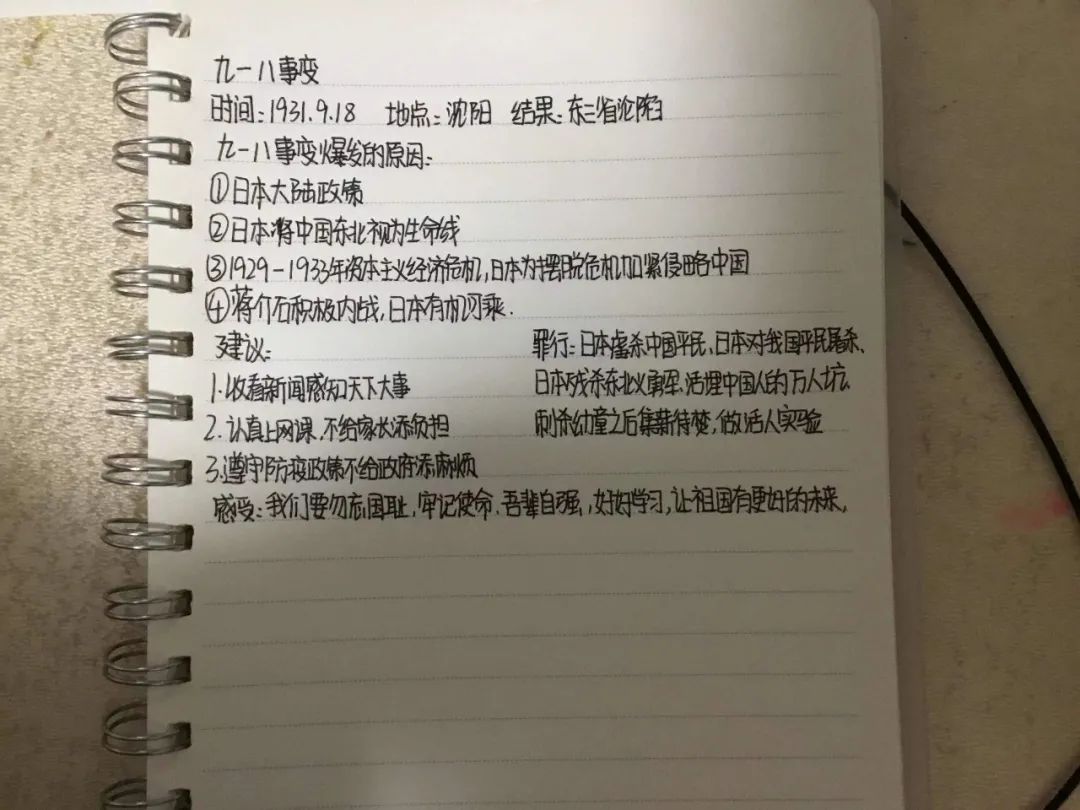 九一八事变
时间:1931.9.18 地点:沈阳 结果:东三省沦陷
九一八事变爆发的原因:
①日本大陆政策
②日本将中国东北视为生命线
③1929-1933年资本主义经济危机,日本为摆脱危机加紧侵略中国
④蒋介石积极内战,日本有机可乘.
建议:
1.收看新闻感知天下大事
2.认真上网课.不给家长添负担
3.遵守防疫政策不给政府添麻烦
罪行:日本虐杀中国平民、日本对我国平民屠杀、
日本残杀东北义勇军.活埋中国人的万人坑.
刺杀幼童之后集薪待焚,做活人实验
感受:我们要勿忘国耻,牢记使命.吾辈自强,好好学习,让祖国有更好的未来,